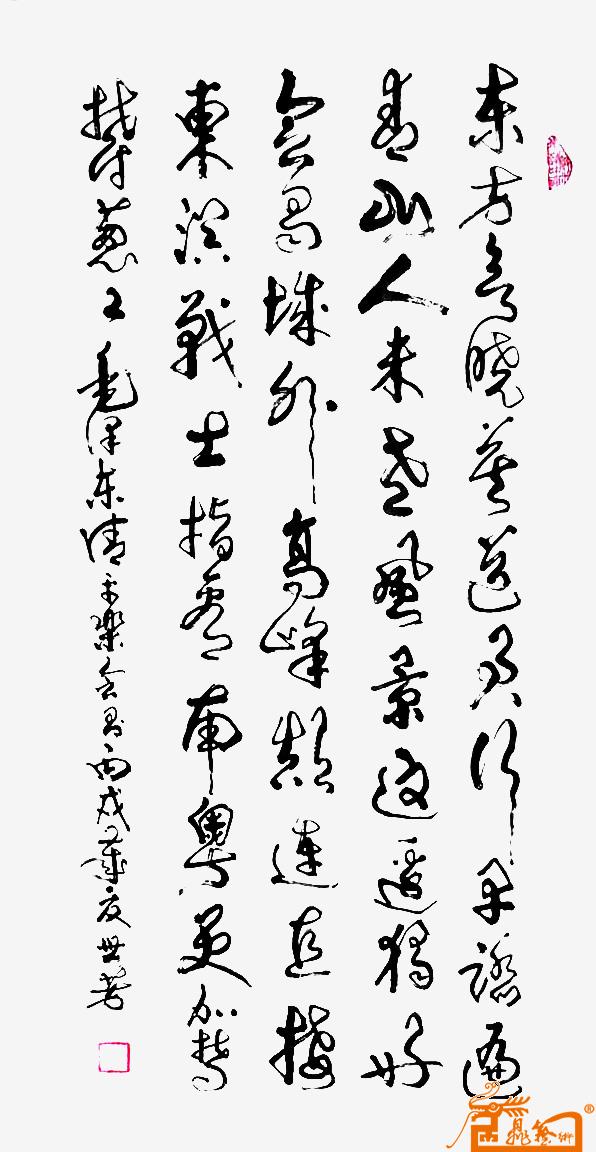 东方欲晓莫道君行早踏遍
青山人未老风景这边独好
会昌城外高峰颠连直接
東溟戰士指看南粤更加鬱
鬱葱〻毛泽东清平樂会昌丙戌